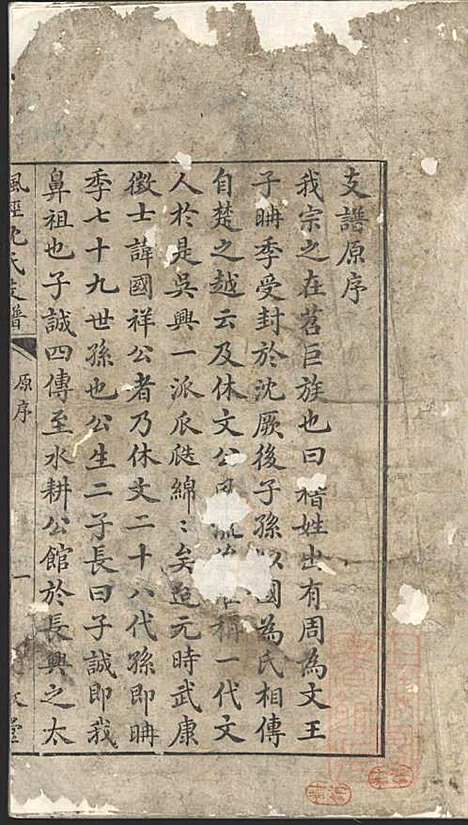 支譜原序
我宗之在苕巨族也曰稽姓出有周為文王
子聃季受封於沈厥後子孫以國為氏相傳
自楚之越云及休文公風流 稱一代文
人於是吳興一派瓜瓞綿〻矣迨元時武康
徵士諱國祥公者乃休文二十八代孫即聃
季七十九世孫也公生二子長曰子誠即我
鼻祖也子誠四傳至水耕公館於長興之太
風涇沈氏支譜
原序
一
堂